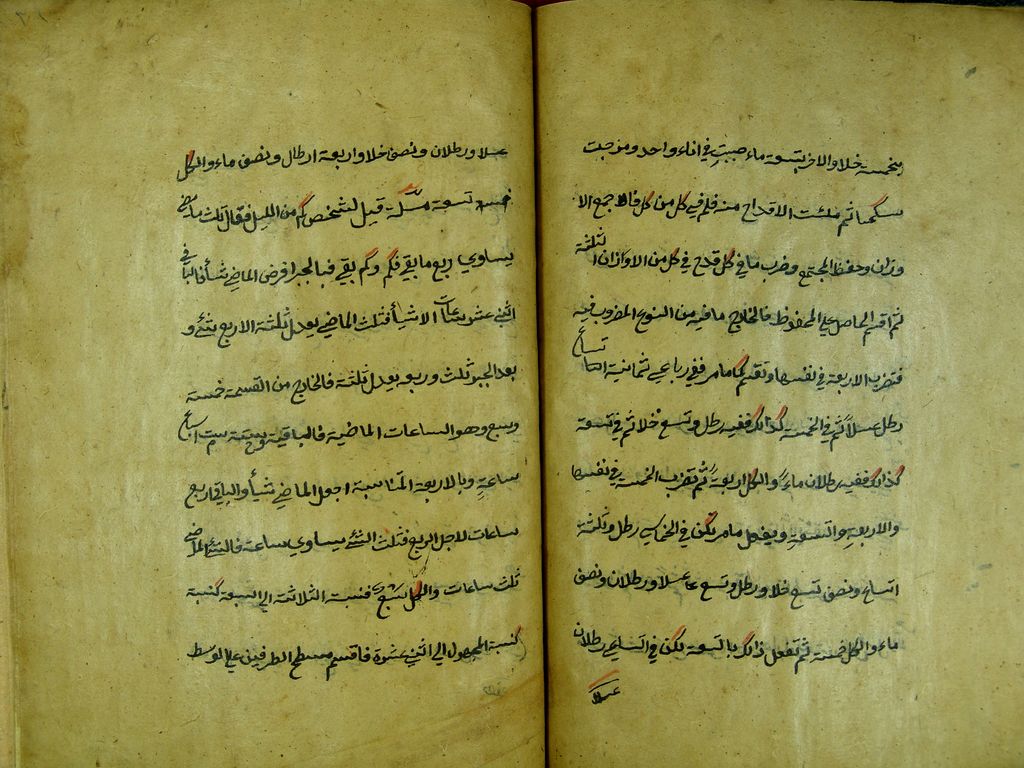 بخمسة خلا والاخر بتسعة ماء صببت في اناء واحد ومزجت
سكنجبينا ثم ملئت الاقداح منه فلم في كل من كل فالا جمع الا
وزان وحفظ المجتمع وضرب ما في كل قدح في كل من الاوزان الثلثة
ثم اقسم الحاصل علي المحفوظ فالخارج ما فيه من النوع المضروب فيه
فتضرب الاربعة في نفسها وتقسم كما مر ففي رباعي ثمانية اتساع
رطل عسلا ثم في الخمسة كذالك ففيه رطل وتسع خلا ثم في تسعة
كذالك ففيه رطلان ماء والكل اربعة ثم تضرب الخمسة في نفسها
والاربعة والتسعة ويفعل ما مر تكن في الخماسي رطل وثلثة
اتساع ونصف تسع خلا ورطل وتسع عسلا ورطلان ونصف
ماء والكل خمسة ثم تفعل ذالك بالتسعة تكن في التساعي رطلان
عسلا
عسلا ورطلان ونصف خلا واربعة ارطال ونصف ماء والكل
تسعة مسئلة قيل لشخص كم من الليل فقال ثلث ما مضي
يساوي ربع ما بقي فكم وكم بقي فبالجبر افرض الماضي شيأ فالباقي
اثني عشر ساعات الا شيأ فثلث الماضي يعدل ثلثة الا ربع شئ و
بعد الجبر ثلث وربع يعدل ثلثة فالخارج من القسمة خمسة
وسبع وهو الساعات الماضية فالباقية ستة وستة اسباع
ساعة وبالاربعة المتناسبة اجعل الماضي شيأ والباقي اربع
ساعات لاجل الربع فثلث الشئ يساوي ساعة فالشئ الماضي
ثلث ساعات والكل سبع فنسبة الثلاثة الي السبعة كنسبة
كنسبة المجهول الي اثني عشرة فاقسم مسطح الطرفين علي الوسط